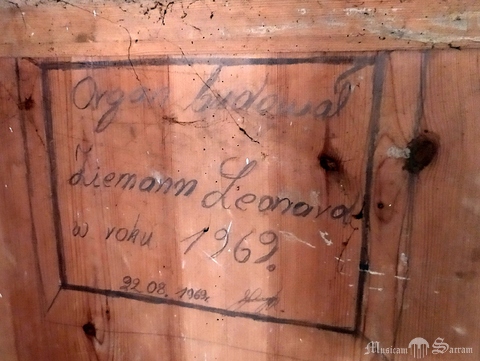 Organ budował
Ziemann Leonard
w roku 1969.
22.08.1969r.
Musicam Sacram